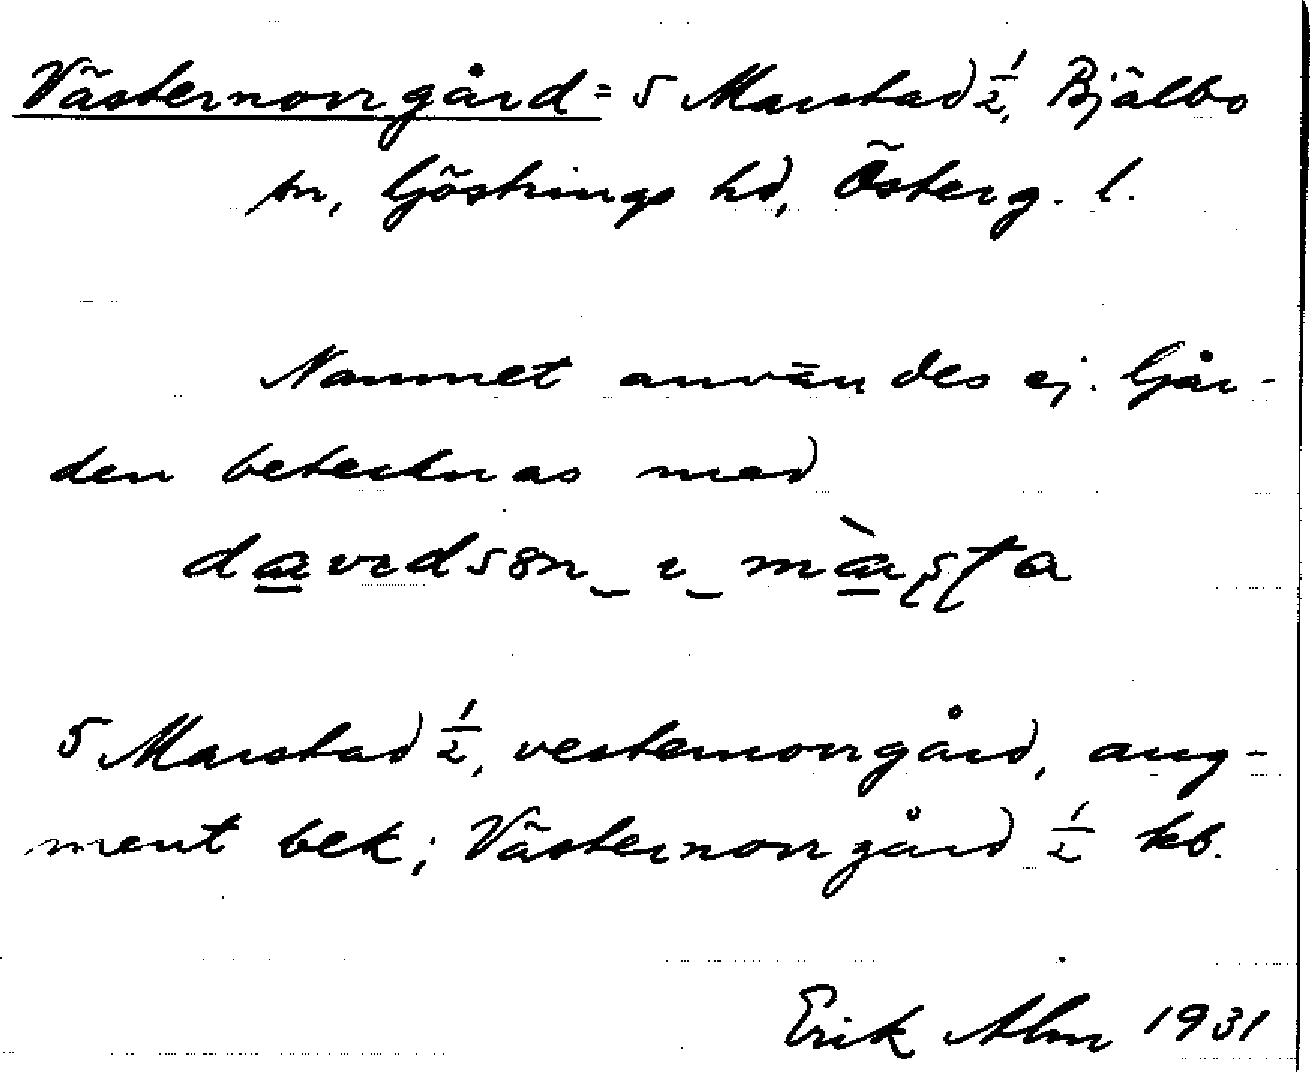 Västernorrgård = 5 Marstad 1/2, Bjälbo
sn, Göstrings hd, Österg. l.
Namnet användes ej. Går-
den betecknas med
davidsön i mašta
5 Marstad 1/2, vesternorrgård, aug-
ment bek; Västernorrgård 1/2 kb.
Erik Alm 1931